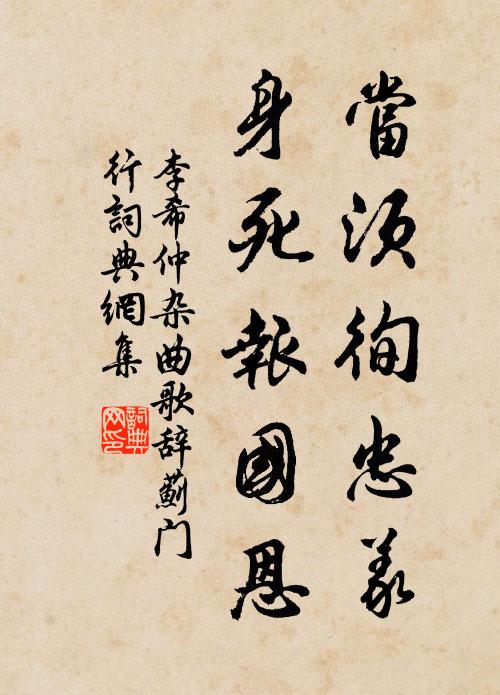 當須徇忠義
身死報國恩
李希仲杂曲歌辞薊门
行詞典網集
詞典
网印